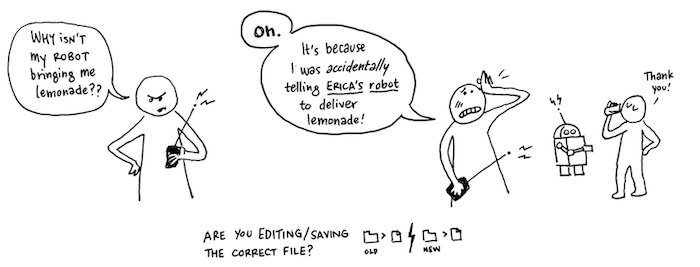 WHY ISN'T
MY ROBOT
bringing me
lemonade??
Oh.
It's because
I was accidentally
telling ERICA'S robot
to deliver
lemonade!
Thank
you!
ARE YOU EDITING/SAVING
THE CORRECT FILE?
> >
OLD NEW